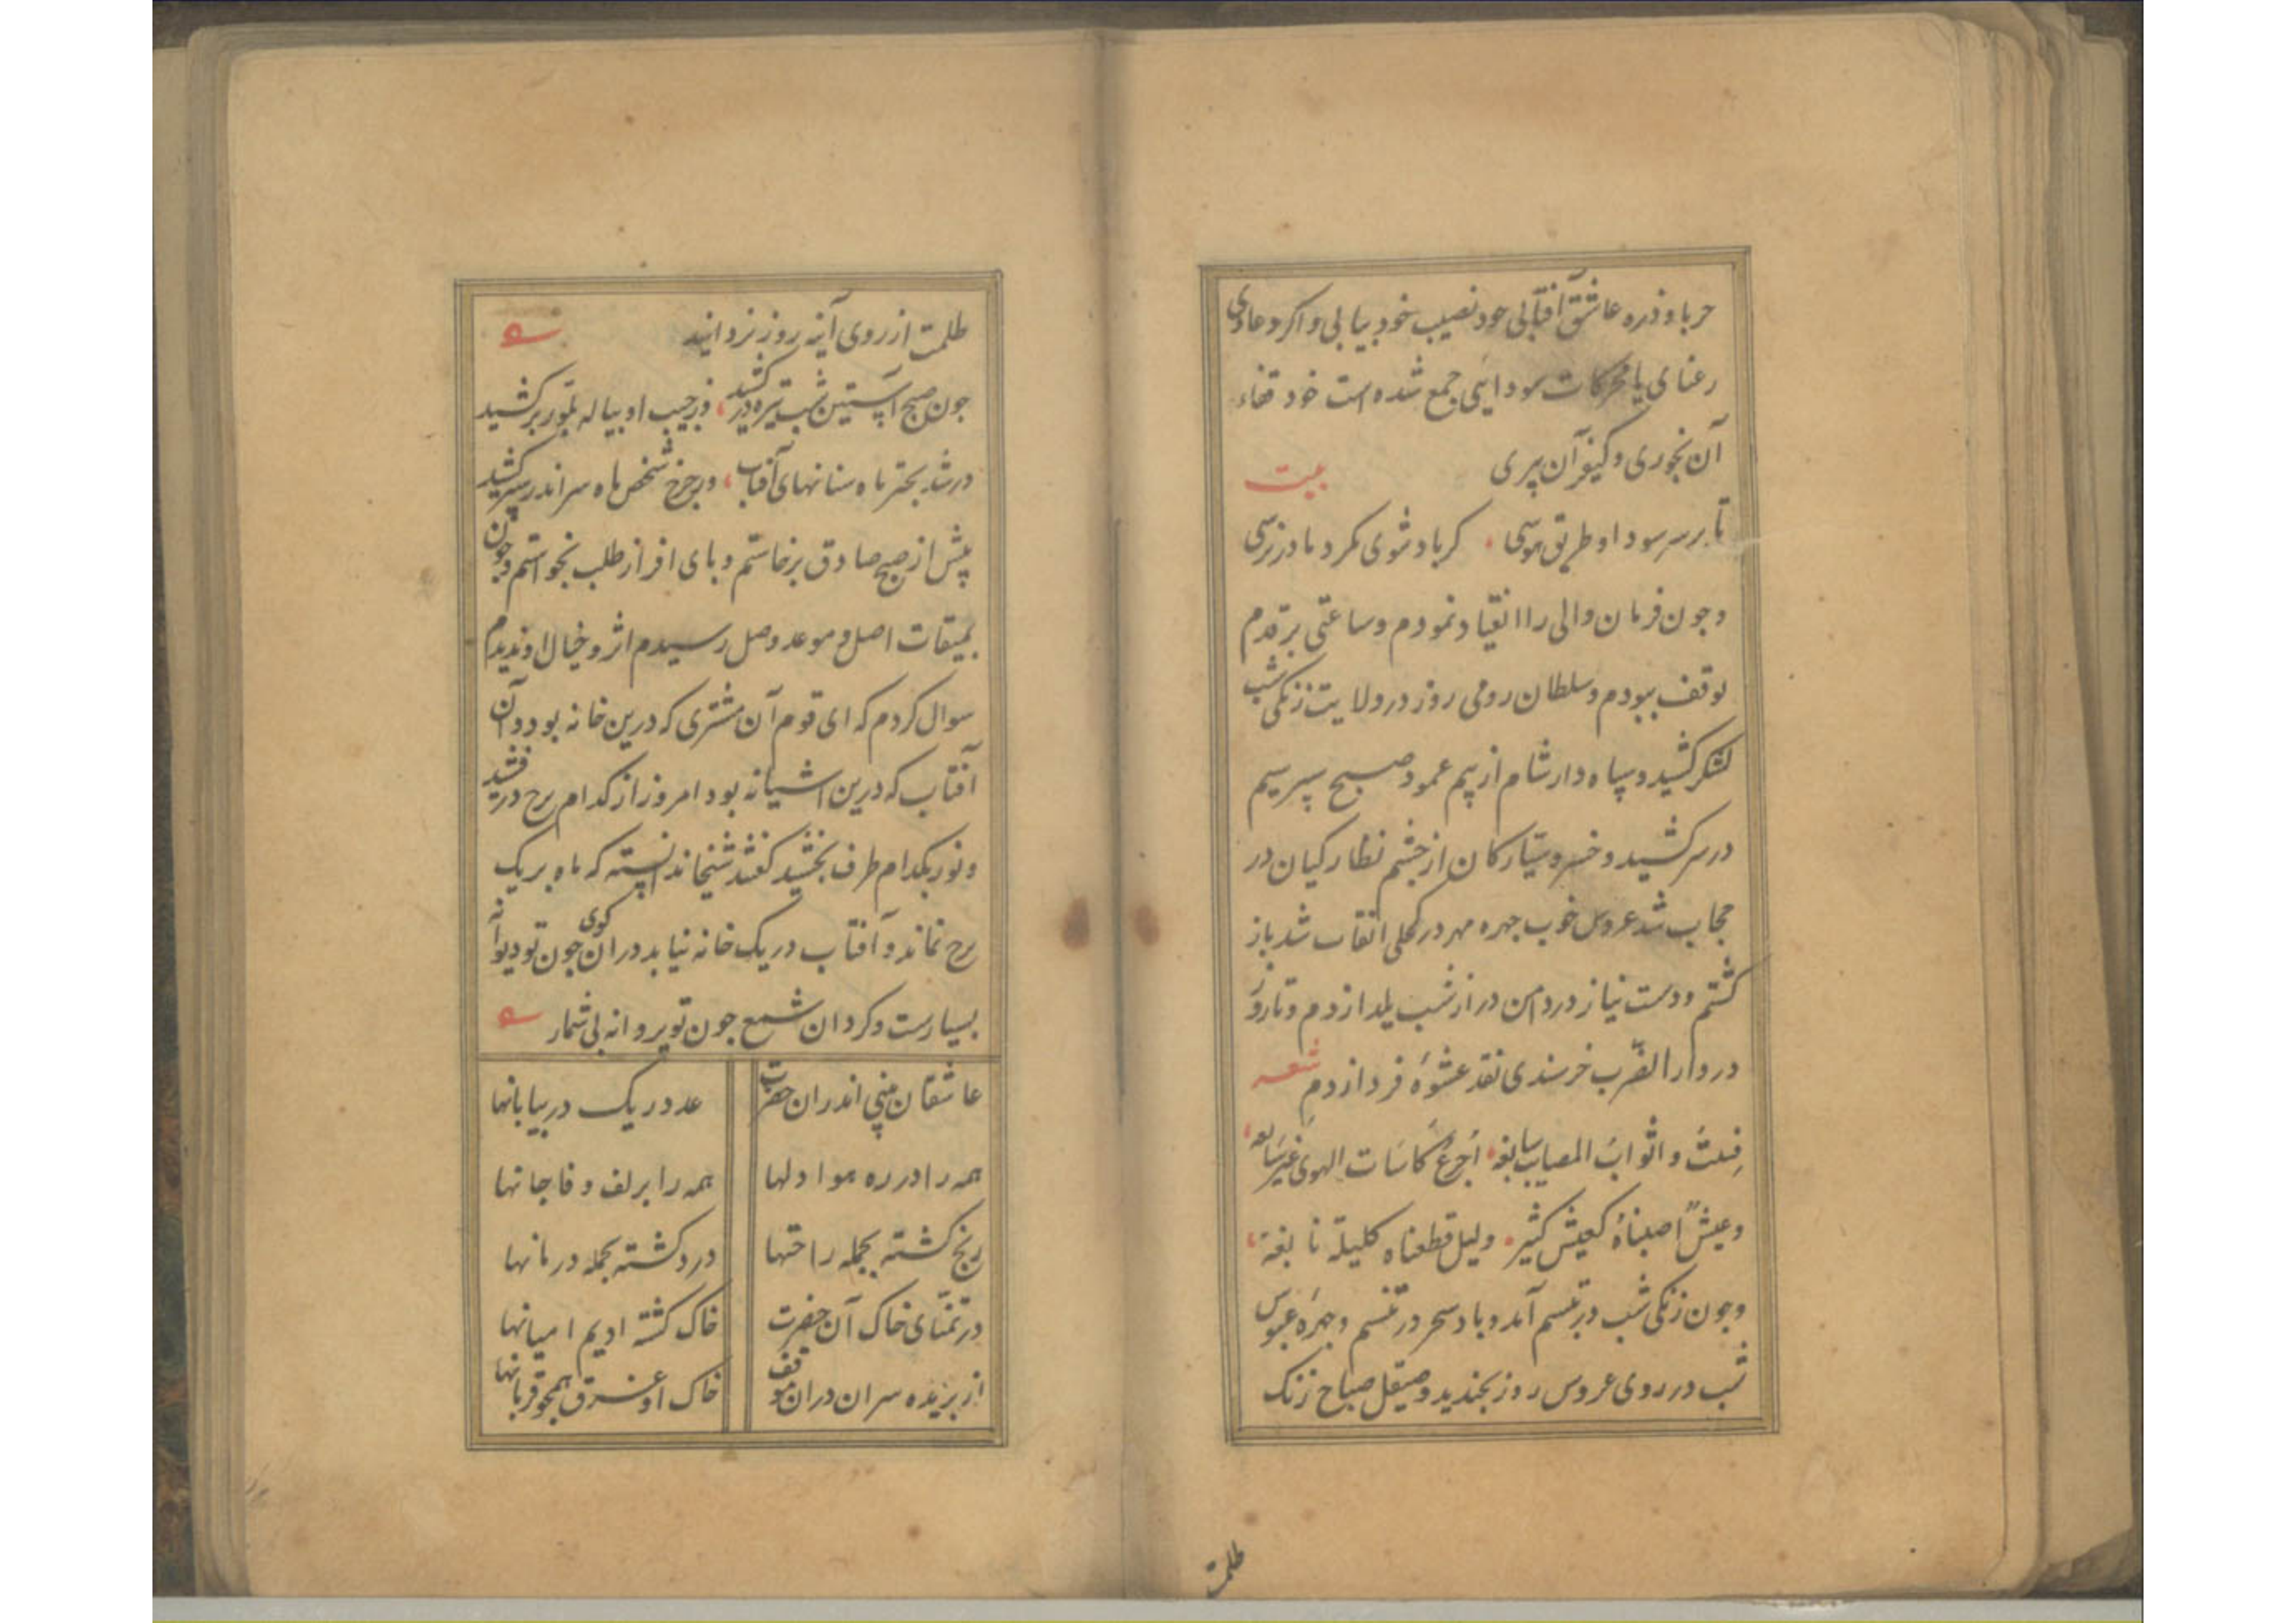 حربا و ذره عاشق آفتابی خود نصیب خود بیابی و اکر دعاوی
رعنای یا محرکات سودایی جمع شده است خود قضاء
آن بخوری و کیفر آن بری
بیت
تا بر سر سود او طریق هوسی کرباد شوی بکرد ما در نرسی
وجون فرمان والی را انقیاد نمودم وساعتی بر قدم
توقف ببودم وسلطان رومی روز در ولایت زنکی شب
لشکر کشید وسپاه دار شام از بیم عمود صبح سپر سیم
در سر کشید و خسرو سیارکان از چشم نظارکیان در
حجاب شد عروس خوب جهره مهر در کحلی نقاب شد باز
کشتم ودست نیاز در دامن دراز شب یلدا زدم وتا روز
در دار الضرب خرسندی نقد عشوهٔ فردا زدم
شعر
فبتُ واثوابُ المصایب سابغه اُجرعُ کاسات الهوی غیر سایغه
وعیشٌ اصبناهُ کعیش کثیر ولیل قطعناه کلیلة نابغة
وجون زنکی شب در تبسم آمد وباد سحر در تنسم وجهرهٔ عبوس
شب در روی عروس روز بخندید وصیقل صباح زنک
ظلمت
ظلمت از روی آینه روز بزدانید
جون صبح آستین شب تیره در کشید وز جیب او پیاله بلور برکشید
در شد بحتر ماه سنانهای آفتاب وبر چرخ شخص ماه سر اندر سپر کشید
پیش از صبح صادق برخاستم وبای افزار طلب بخواستم وجون
بمیقات اصل وموعد وصل رسیدم اثر وخیال او ندیدم
سوال کردم که ای قوم آن مشتری که درین خانه بود وآن
آفتاب که درین اشیانه بود امروز از کدام برج درفشید
ونور بکدام طرف بخشید کفتند شیخا ندانسته که ماه بریک
برج نماند وآفتاب در یک خانه نیاید در ان کوی جون تو دیوانه
بسیارست وکرد ان شمع جون تو پروانه بی شمار
عاشقان بینی اندران حضرت عدد ریک در بیابانها
همه را در ره هوا دلها همه را بر لف وفا جانها
رنج کشته بجمله راحتها درد کشته بجمله درمانها
در تمنّای خاک آن حضرت خاک کشته ادیم امیانها
از بریده سران دران موقف خاک او غرق همچو قربانها